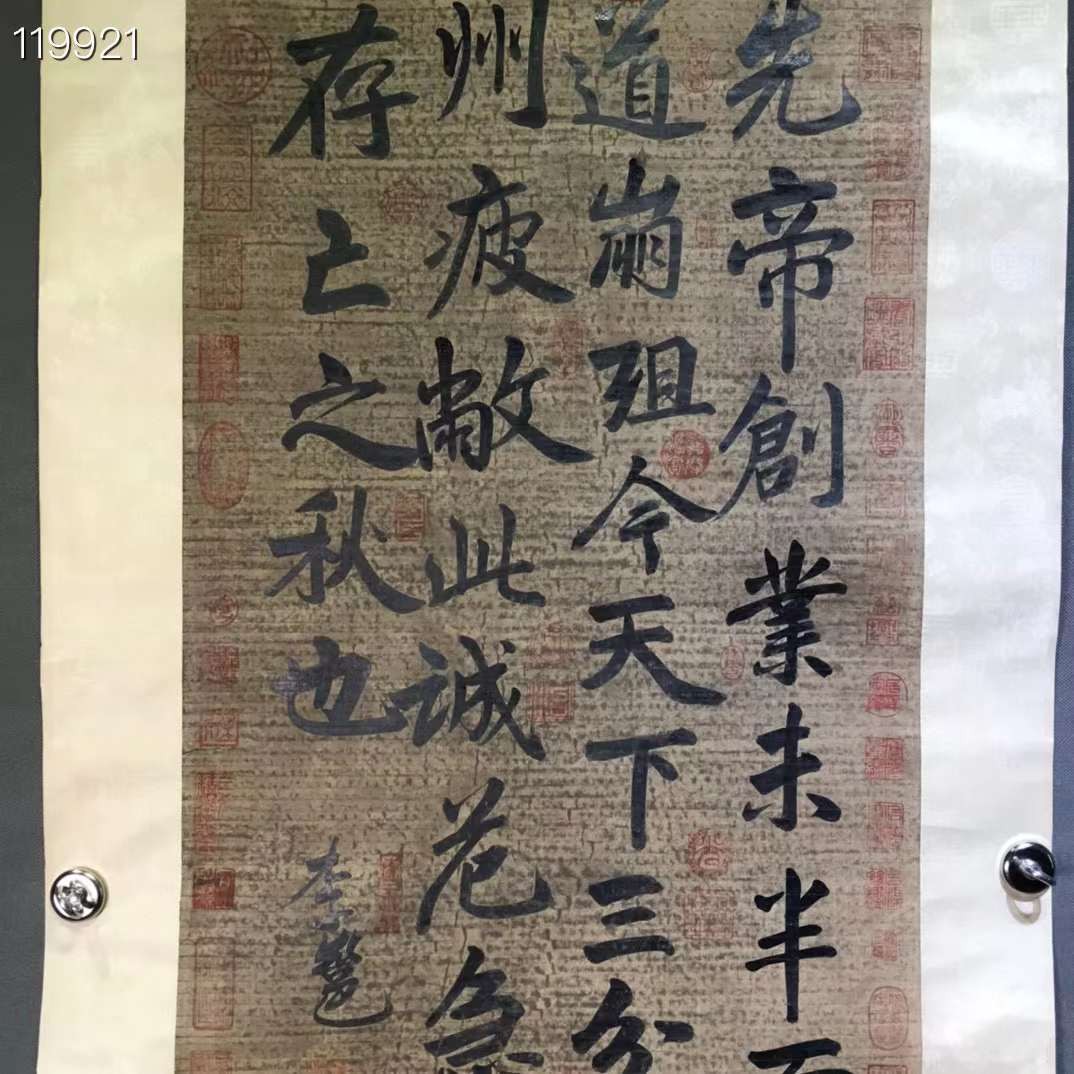 119921
先帝創業未半而
道崩殂今天下三分
州疲敝此誠危急
存亡之秋也